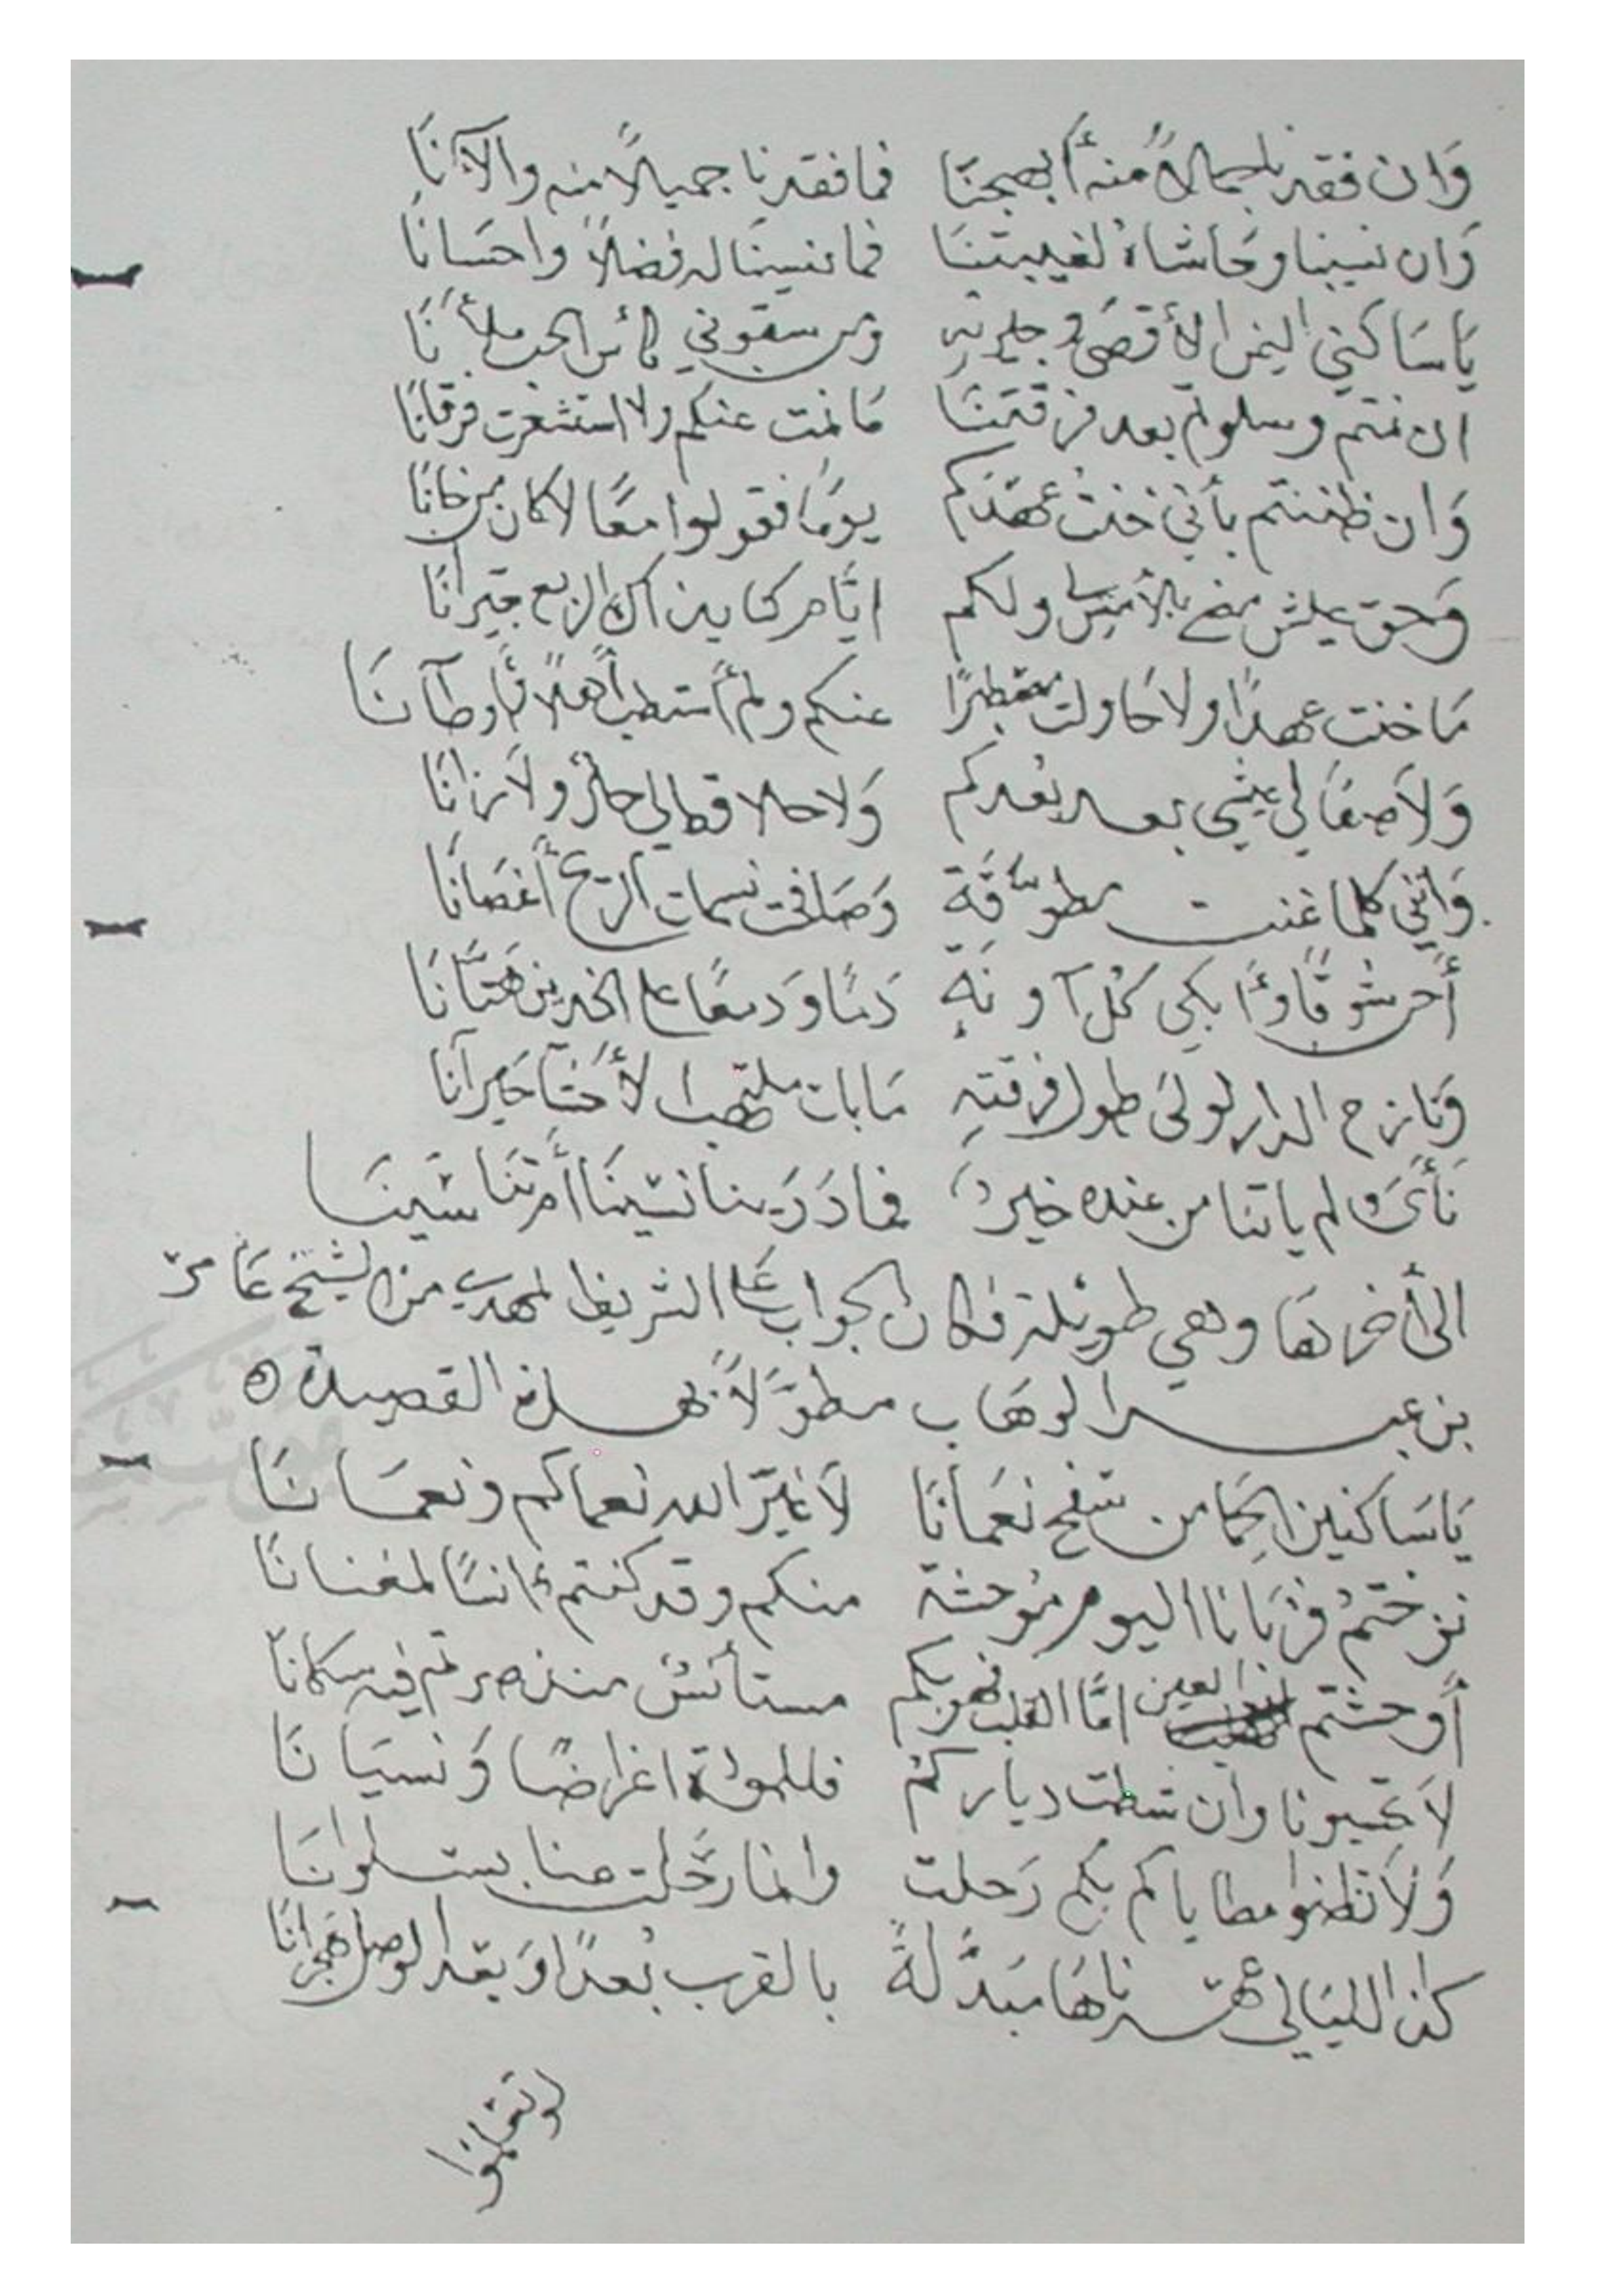 وَان فقدنا جمالاً منه أبهجنَا فما فقدنا جميلاً منه والآنَا
وَان نسينا وحَاشَاه لغيبتنَا فما نسينَا له فضلاً واحسَانَا
يَا سَاكني اليمن الأقصَى وجيرته ومن سقوني كأس الحب ملأنَا
ان نمتم وسلوتم بعد فرقتنَا مَا نمت عنكم ولا استشعرت فرقانَا
وَان ظننتم بأني خنت عهدكم يومًا فقولوا معًا لا كان من خانَا
وَحق عيش مضى بالأمس لي ولكم ايَّام كنا بذاك الربع جيرانَا
مَا خنت عهدًا ولا حَاولت مصطبرًا عنكم ولم أستطب أهلاً وأوطآنَا
وَلاَ صفَا لي عيشي بعد بعدكم وَلا حلا قط لي حال ولاَ زانَا
وَانني كلما غنت مطوَّقَة وَصَافحت نسمات الريح أغصَانَا
أحن شوقًا وأبكي كل آونَةٍ دَمًا وَدمعًا على الخدين هتَّانَا
وَنازح الدار لولىَ طول فرقتهِ مَا بات ملتهب الأحشَا حَيرآنَا
نَأىَ ولم ياتنا من عنده خبرٌ فما دَرَينا نسْينَا أم تنَاسَينَا
الى أخرهَا وهي طويلة فكان الجواب عَلى الشريف المهدي من الشيخ عَامر
بن عبد الوهَاب مطوَّلاً بهذه القصيدة
يَا سَاكنين الحِمَا من سَفح نعمَانَا لاَ غيَّر الله نعماكم ونعمَانَا
نزحتمُ فرُبَانا اليوم مُوحشة منكم وقد كنتم أنسًا لمغنانَا
أوحشتم العين امَّا القلب فهو بكم مستأنسٌ منذ صرتم فيه سكانَا
لاَ تحسبونا وان شطت دياركم فللمودة اعراضًا وَنسيَانَا
وَلاَ تظنوا مطاياكم بكم رَحلت وانما رَحَلت منا بسلوانَا
كذا الليَالي عهدناهَا مبدَّلةً بالقرب بُعدًا وَبعد الوصل هجرانَا
لو تعلموا